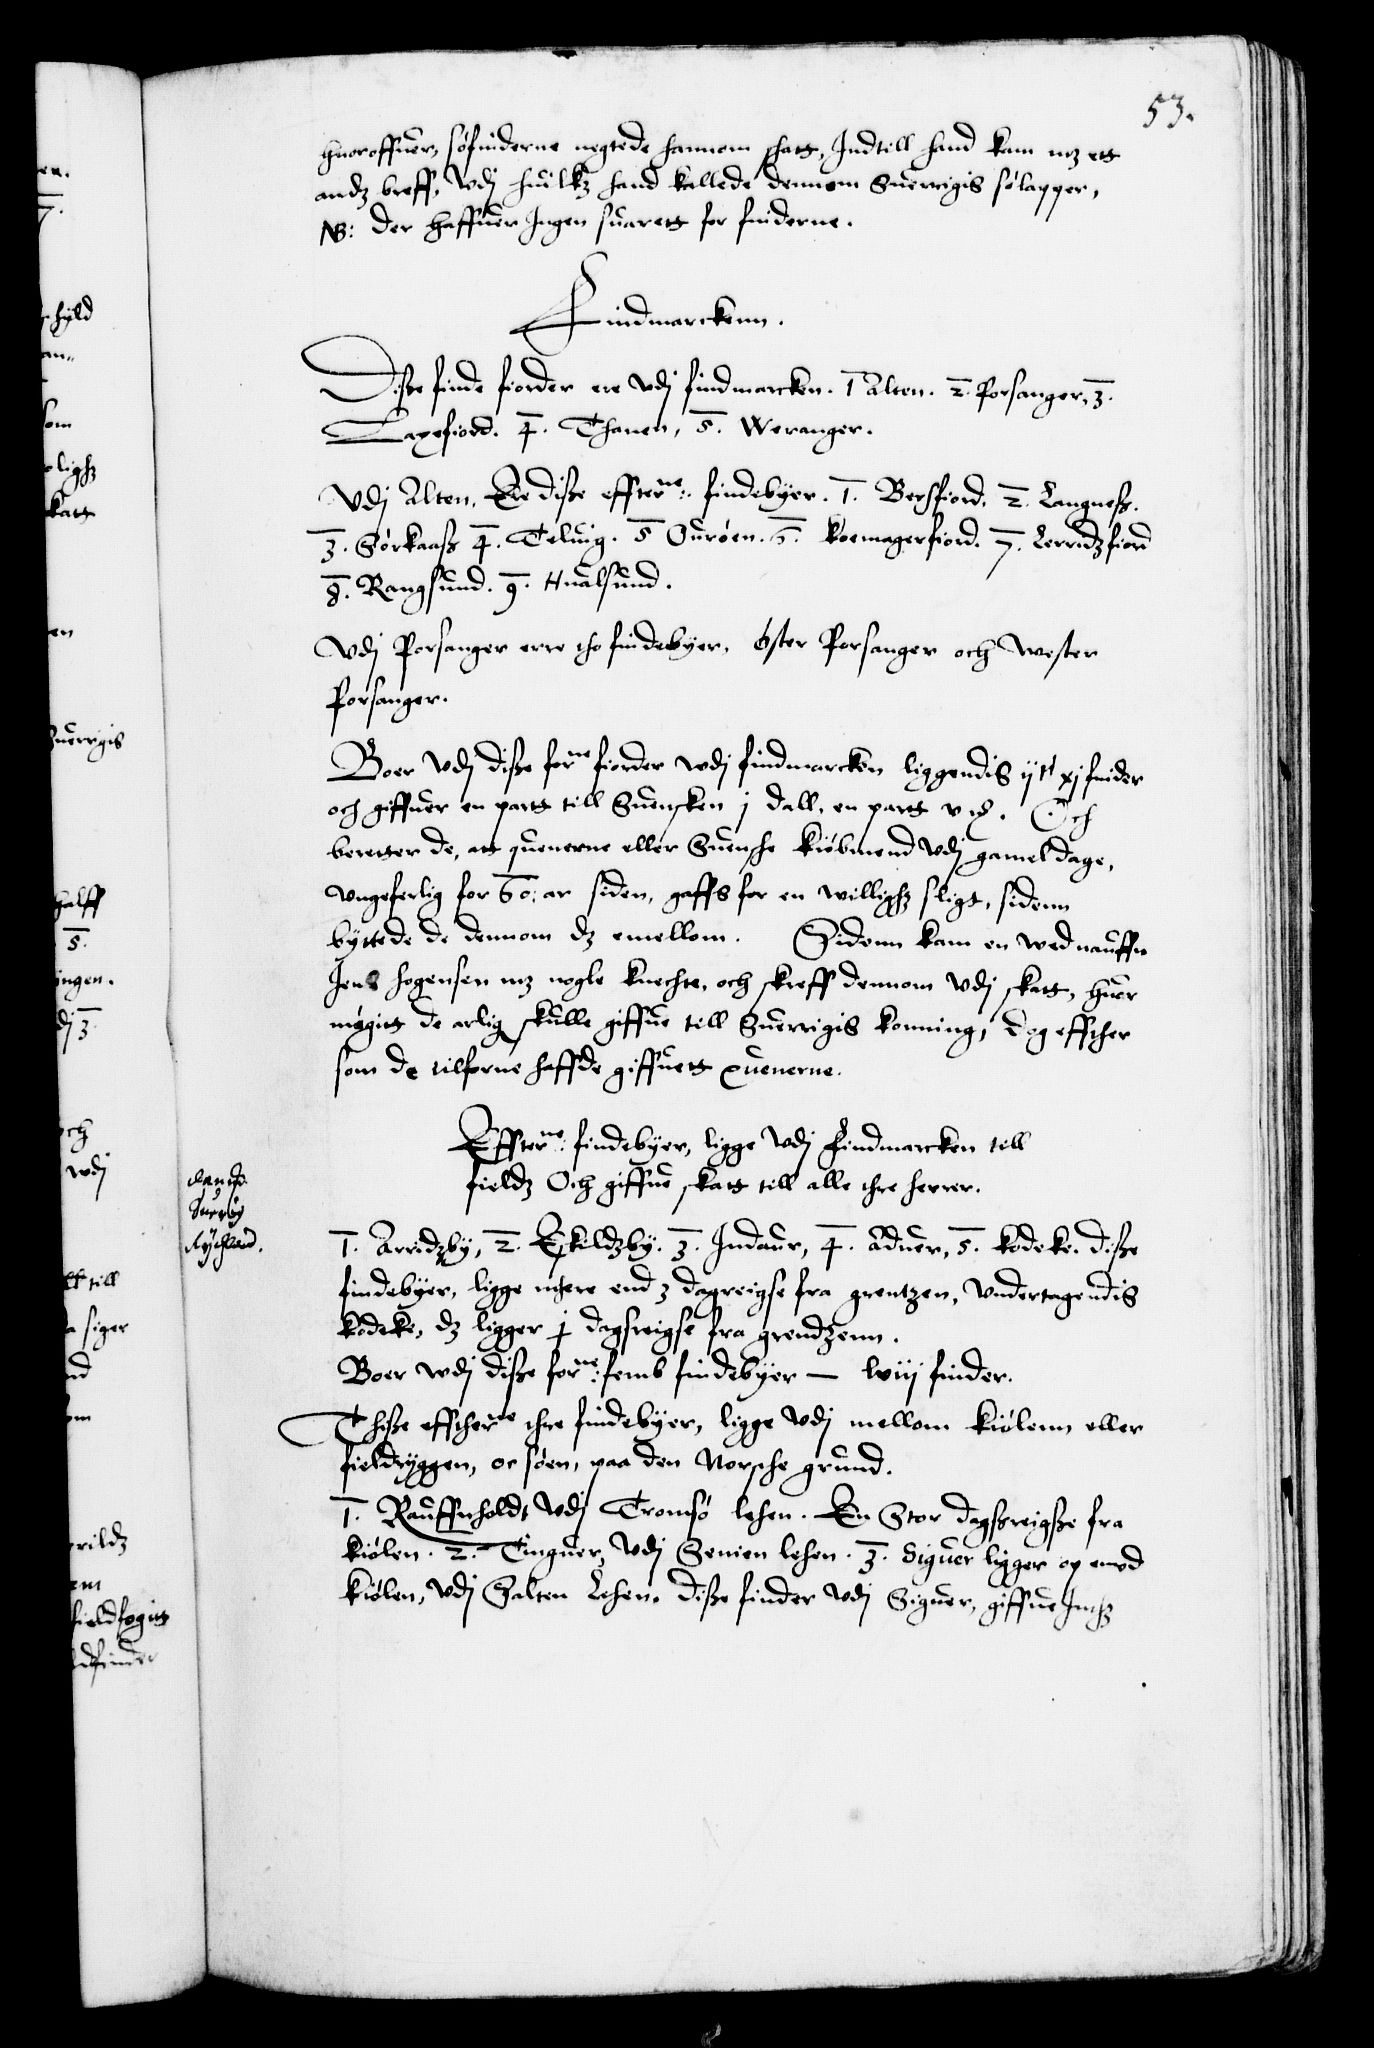 53.
huoroffuer, søfinderne negtede hannom schatt, Indtill hand kam mz ett
andz breff, Vdj huilkz hand kallede dennom Suerrigis sølapper,
NB: der haffuer Ingen suarett for finderne.
Findmarckenn.
Disse finde fiorder ere vdj findmarcken. 1 Alten. 2. Porsanger, 3.
Laxefiord. 4. Thanen, 5. Weranger.
Vdj Alten, Ere disse effterne: findebyer. 1. Bersfiord. 2. Langness.
3. Sørkaass 4. Teluig. 5 Ourøen. 6. Koemagerfiord. 7. Lerridzfiord
8. Rangsund. 9. Hualsund.
Vdj Porsanger erre tho findebyer, øster Porsanger och Wester
Porsanger.
Boer Vdj disse forne fiorder wdj findmarcken liggendis ijc xj finder
och giffuer en partt till Suensken j dall. en partt v ß. Och
beretter de, att quenerne eller Suensche kiøbmend Vdj gamel dage,
vngeferlig for 60: ar siden, gaffs for en willighz sligt, sidenn
byttede de dennom dz emellom. Sidenn kam en wed nauffn
Jens hogensen mz nogle knechte, och skreff dennom Vdj skatt, huor
møgitt de arlig skulle giffue till Suerrigis konning, dog effther
som de tilforne haffde giffuett quenerne.
Effterne: findebyer, ligge Vdj Findmarcken till
fieldz Och giffue skatt till alle thre herrer.
1. Arridzby, 2. Eskildzby. 3. Indaur, 4. Aduer, 5. kodeke. disse
findebyer, ligge mhere end 3 dagreigse fra grentzen, Vndertagendis
kodeke, dz ligger j dagsreigse fra grendzenn.
Boer wdj disse forne: femb findebyer — lviij finder.
Thisse efftherne thre findebyer, ligge Vdj mellom kiølenn eller
fieldryggen, oc søen, paa den Norsche grund.
1. Rauffnholdt Vdj Tromsø lehen. En Stor dagssreigsse fra
kiølen. 2. Tinguer, Vdj Senien lehen. 3. Siguer ligger op emod
kiølen, Vdj Salten Lehen. disse finder Vdj Siguer, giffue Inthz